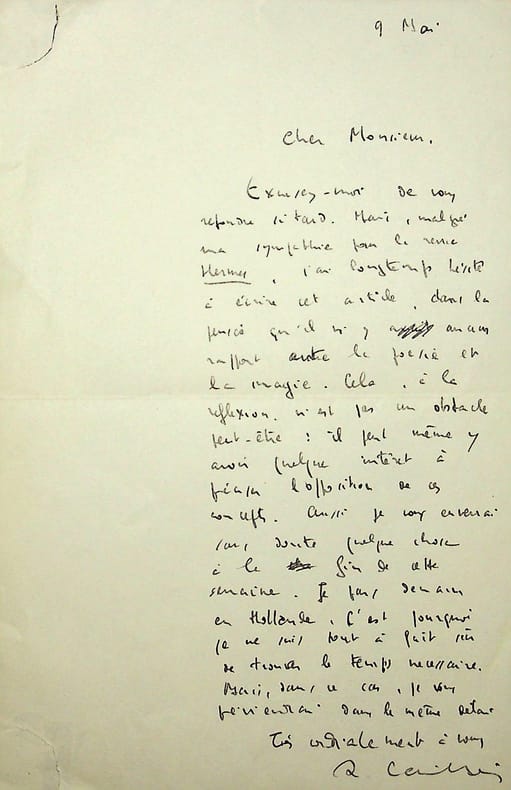 9 Mai
Cher Monsieur,
Excusez-moi de vous
répondre si tard. Mais, malgré
ma sympathie pour la revue
Hermes, j'ai longtemps hésité
à écrire cet article, dans la
pensée qu'il n'y aucun
rapport entre la poésie et
la magie. Cela, à la
réflexion, n'est pas un obstacle
peut-être : il peut même y
avoir quelque intérêt à
préciser l'opposition de ces
concepts. Aussi je vous enverrai
sans doute quelque chose
à la fin de cette
semaine. Je pars demain
en Hollande, c'est pourquoi
je ne suis tout à fait sûr
de trouver le temps nécessaire.
Mais, dans ce cas, je vous
préviendrai dans le même délai
Très cordialement à vous
R Caillois